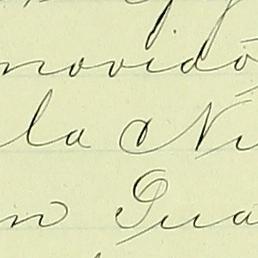 movido
la á Nu
n Gua